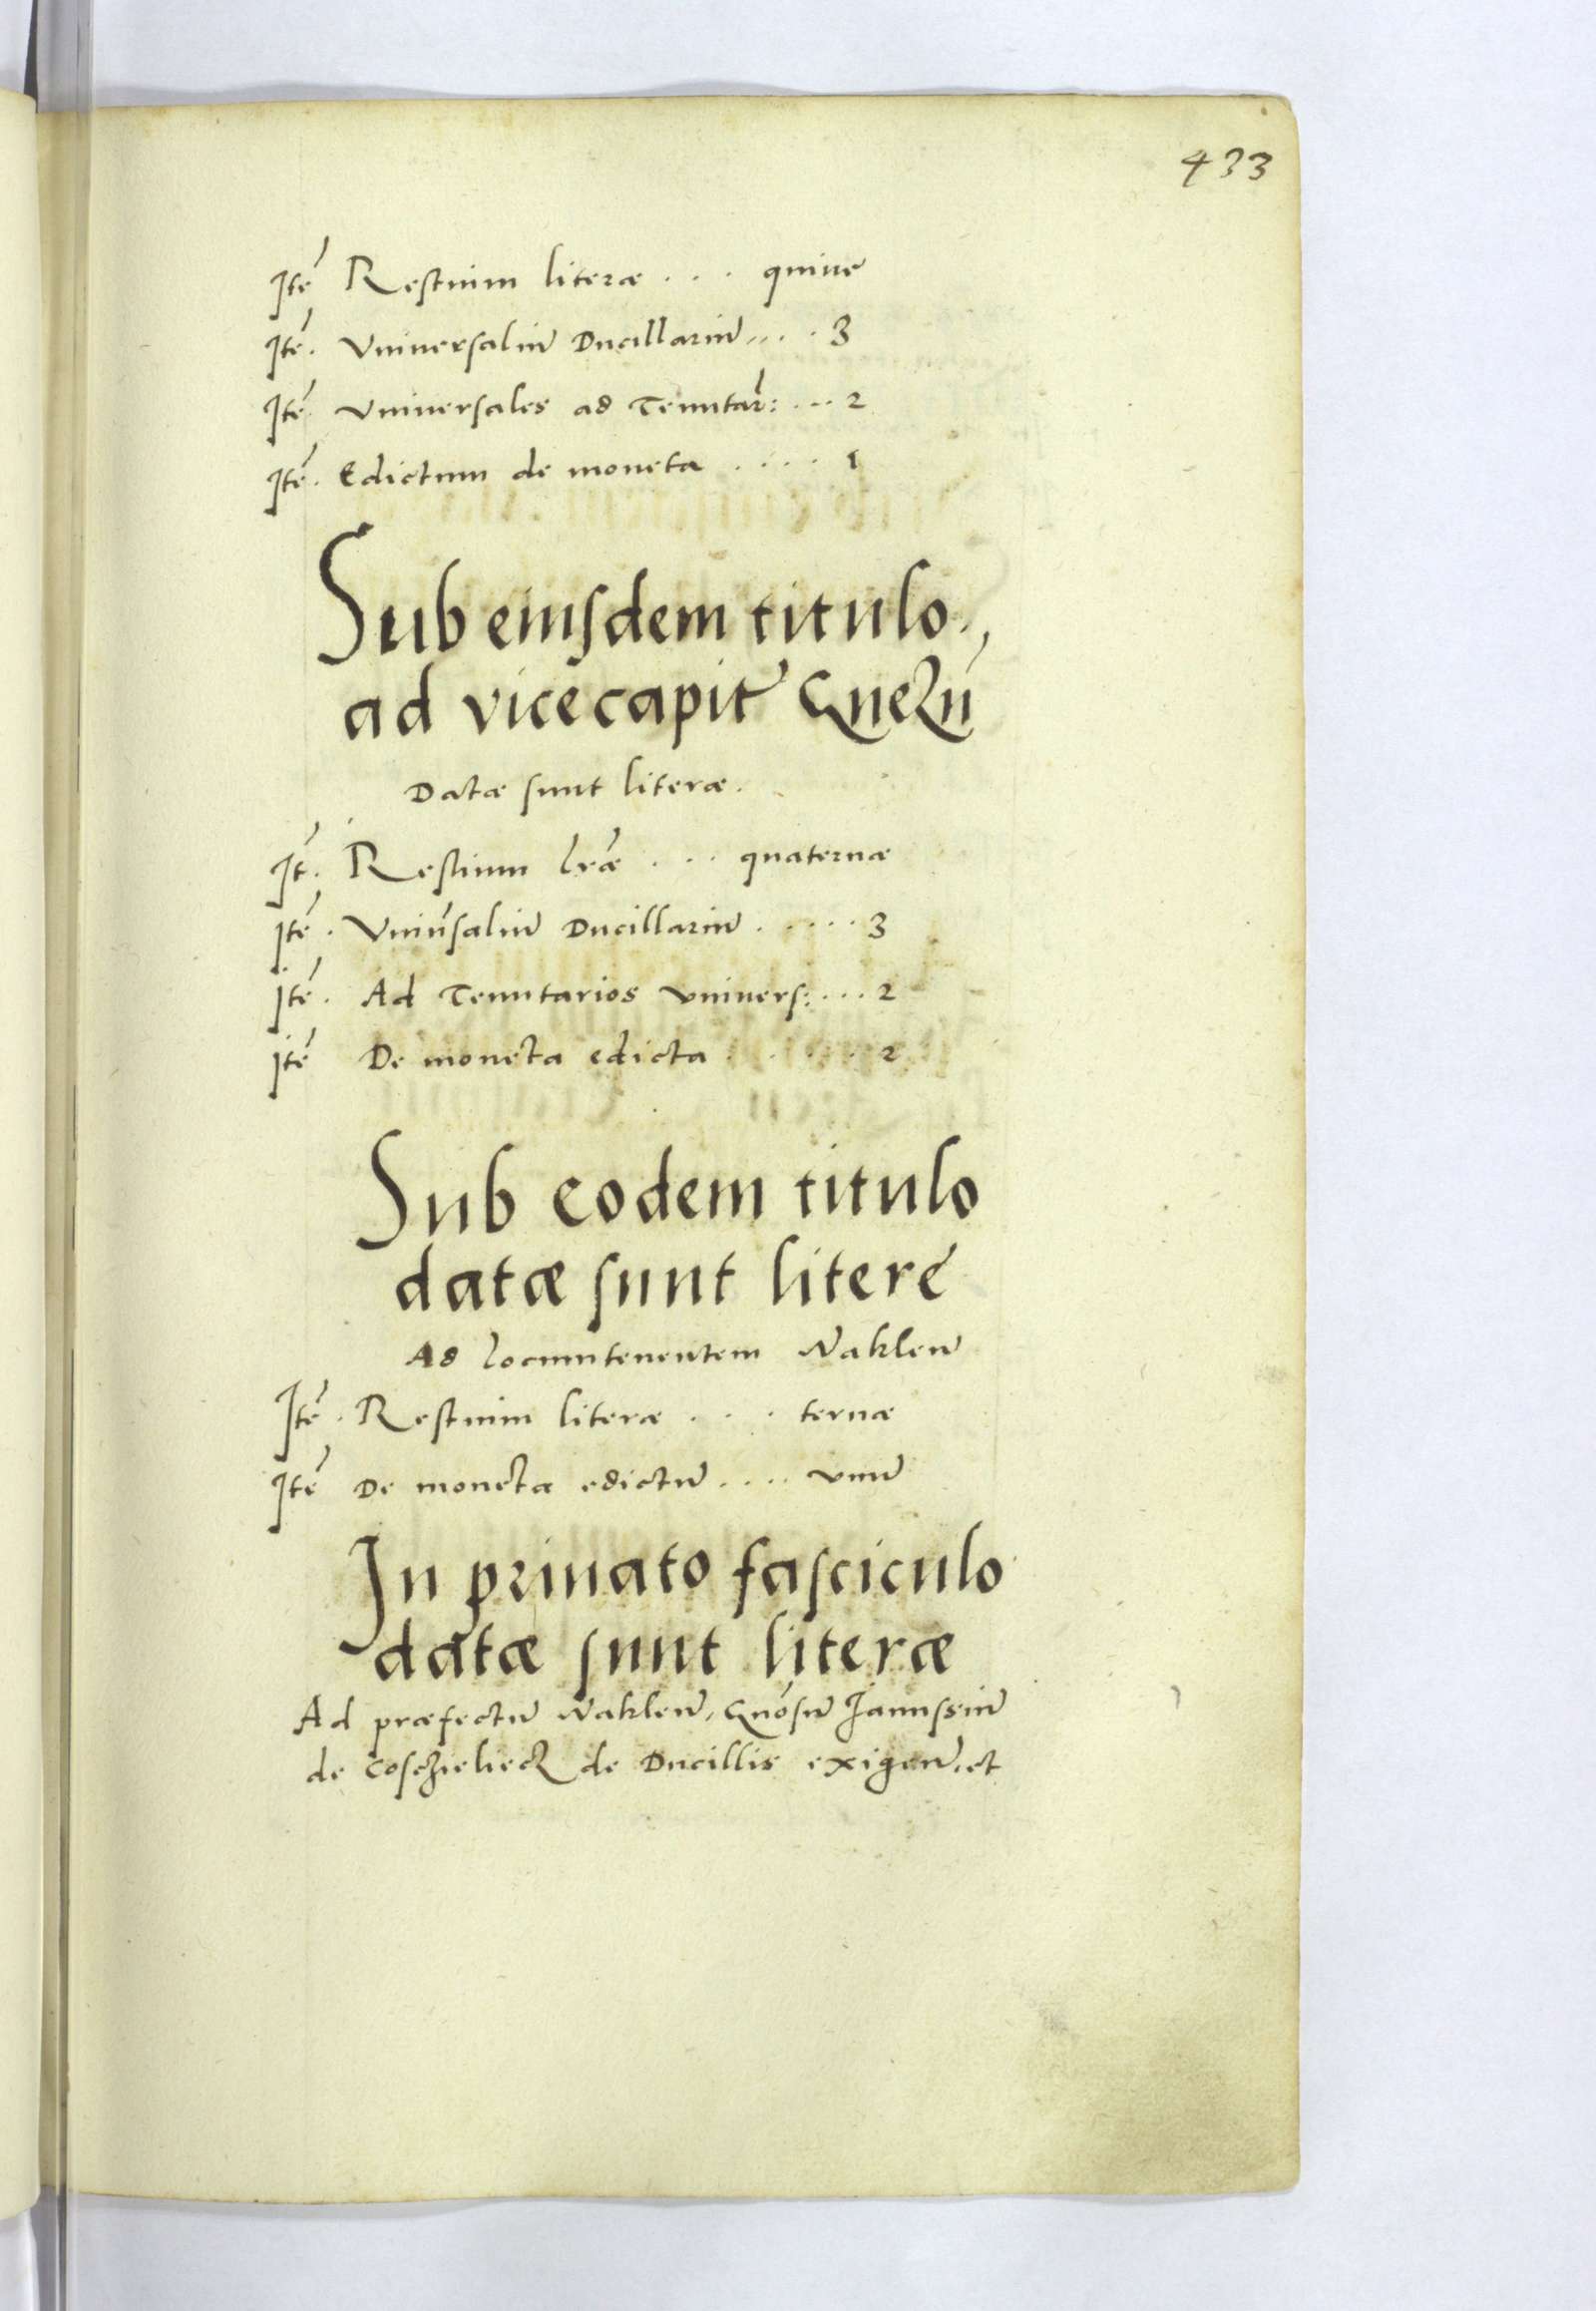 433
Itē Restium literæ . . . quinæ
Itē. Vniuersaliū Ducillariū .... 3
Itē. Vniuersales ad Tenutar: ... 2
Itē. Edictum de moneta . . . . 1
Sub eiusdem titulo,
ad vicecapit Gnezn̄
Datæ sunt literæ.
It̄. Restium lr̄æ . . . quaternæ
Itē. Vniūsaliū Ducillariū . . . . . 3
Itē. Ad Tenutarios vniuers: ... 2
Itē De moneta edicta . . . . . 2
Sub eodem titulo
datæ sunt litere
Ad locumtenentem Naklen̄
Itē. Restium literæ . . . ternæ
Itē De moneta edictū .... vnū
In priuato fasciculo
datæ sunt literæ
Ad præfectū Naklen̄, Gnōsū Janussiū
de Cosczieliecz de Ducillis exigen̄. et